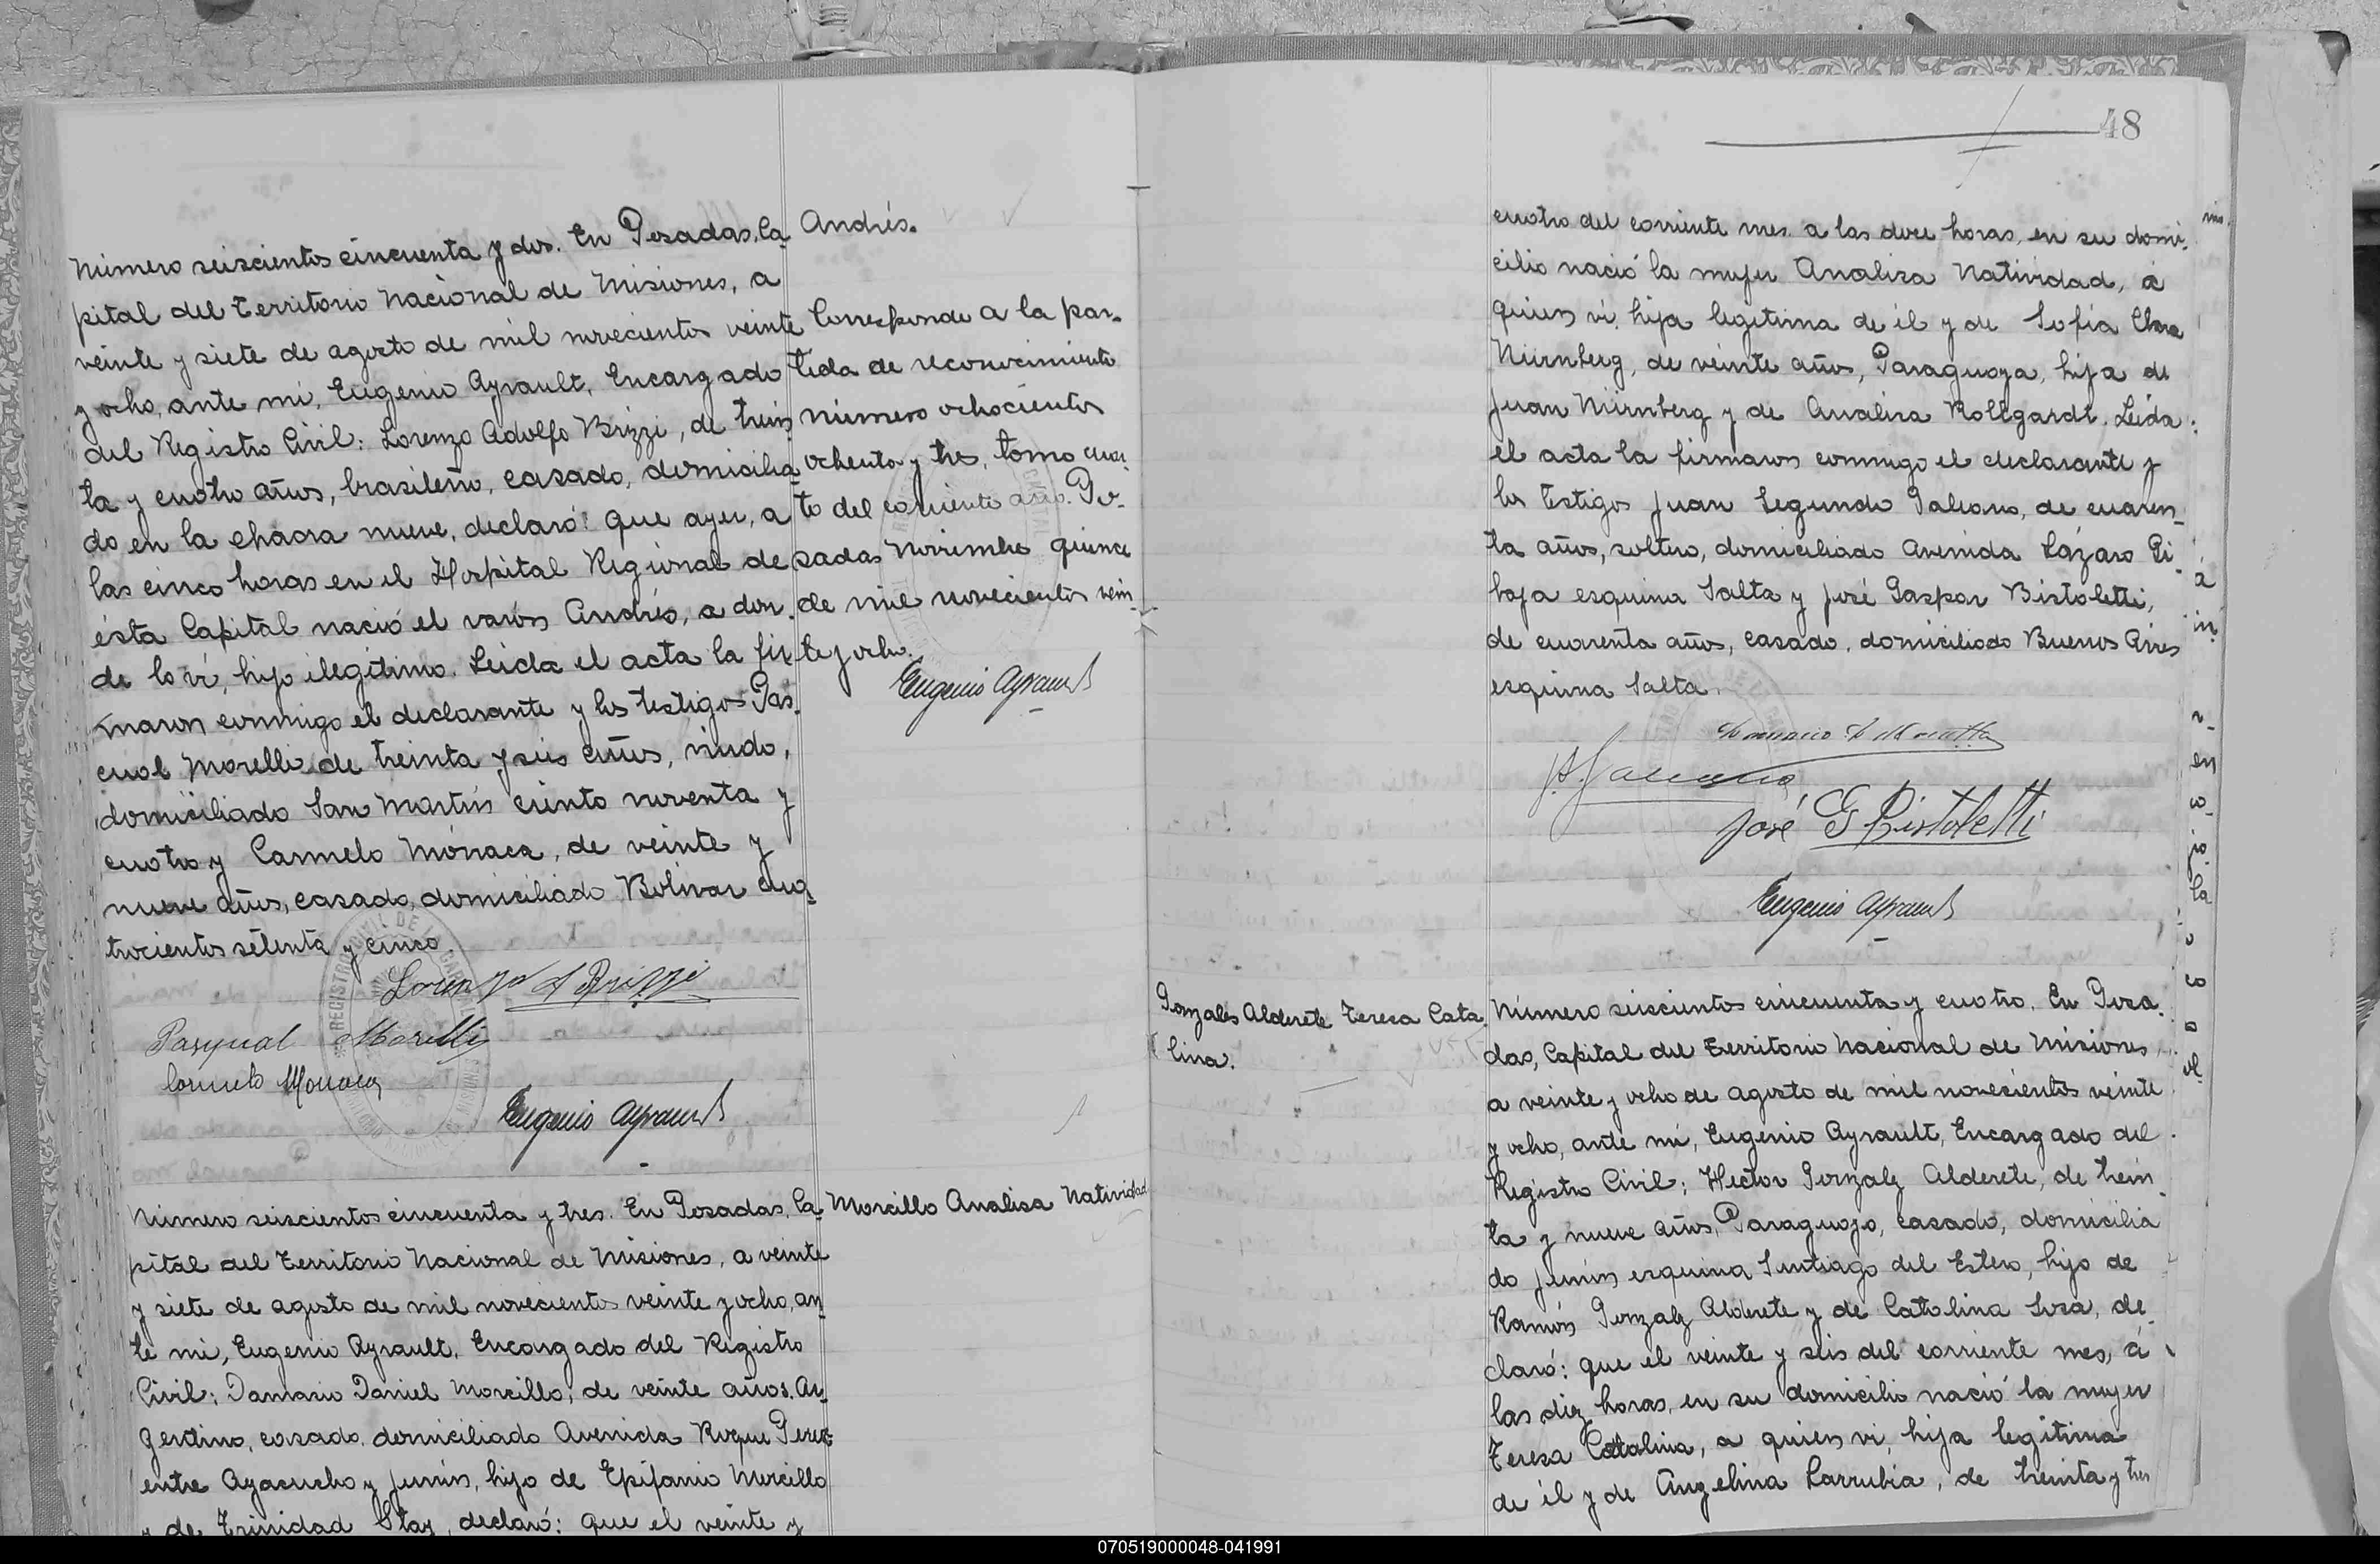 Número seiscientos cincuenta y dos. En Posadas, Ca-
pital del Territorio Nacional de Misiones, a
veinte y siete de agosto de mil novecientos veinte
y ocho, ante mí, Eugenio Ayrault, Encargado
del Registro Civil: Lorenzo Adolfo Brizzi, de trein-
ta y cuatro años, brasileño, casado, domicilia-
do en la chacra nueve, declaró: que ayer, a
las cinco horas en el Hospital Regional de
ésta Capital nació el varón Andrés, a don-
de lo ví, hijo ilegítimo. Leida el acta la fir-
maron conmigo el declarante y los testigos Pas-
cual Morelli de treinta y seis años, viudo,
domiciliado San Martín ciento noventa y
cuatro y Carmelo Mónaca, de veinte y
nueve años, casado, domiciliado Bolívar cua-
trocientos setenta y cinco.
Lorenzo A Brizzi
Pasqual Morelli
Carmelo Monaca
Eugenio Ayrault
Andrés.
Corresponde a la par-
tida de reconocimiento
número ochocientos
ochenta y tres, tomo cuar-
to del corriente año. Po-
sadas Noviembre quince
de mil novecientos vein-
te y ocho.
Eugenio Ayrault
Número seiscientos cincuenta y tres. En Posadas, Ca-
pital del Territorio Nacional de Misiones, a veinte
y siete de agosto de mil novecientos veinte y ocho, an-
te mí, Eugenio Ayrault, Encargado del Registro
Civil; Damasio Daniel Morcillo, de veinte años, Ar-
gentino, casado, domiciliado Avenida Roque Perez
entre Ayacucho y Junín, hijo de Epifanio Morcillo
y de Trinidad Stay, declaró: que el veinte y
Morcillo Analisa Natividad
48
cuatro del corriente mes a las doce horas, en su domi-
cilio nació la mujer Analisa Natividad, á
quien ví, hija legítima de él y de Sofía Clara
Nürnberg, de veinte años, Paraguaya, hija de
Juan Nürnberg y de Analisa Rollgardt. Leida
el acta la firmaron conmigo el declarante y
los testigos Juan Segundo Galeano, de cuaren-
ta años, soltero, domiciliado Avenida Lázaro Gi-
baja esquina Salta y José Gaspar Bistoletti,
de cuarenta años, casado, domiciliado Buenos Aires
esquina Salta.
José G Bistoletti
Eugenio Ayrault
Gonzales Alderete Teresa Cata-
lina.
Número seiscientos cincuenta y cuatro. En Posa-
das, Capital del Territorio Nacional de Misiones,
a veinte y ocho de agosto de mil novecientos veinte
y ocho, ante mí, Eugenio Ayrault, Encargado del
Registro Civil; Hector Gonzalz Alderete, de trein-
ta y nueve años, Paraguayo, casado, domicilia
do Junín esquina Santiago del Estero, hijo de
Ramón Gonzalz Alderete y de Catalina Sosa, de-
claró: que el veinte y seis del corriente mes, á
las diez horas, en su domicilio nació la mujer
Teresa Catalina, a quien vi, hija legítima
de él y de Angelina Larrubia, de treinta y tres
070519000048-041991